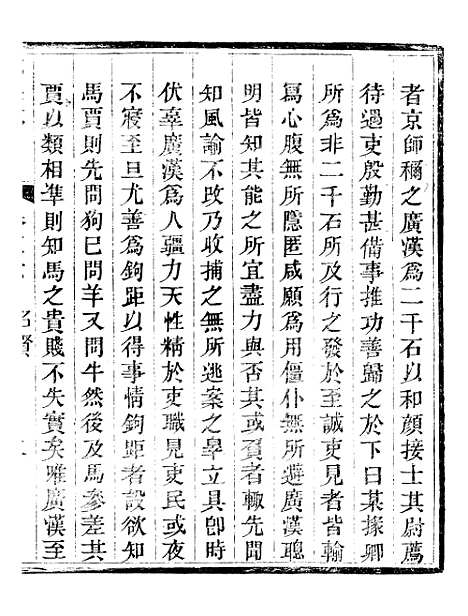 者京師稱之廣漢爲二千石以和顔接士其尉薦
待遇吏殷勤甚備事推功善歸之於下曰某掾卿
所爲非二千石所及行之發於至誠吏見者皆輸
寫心腹無所隱匿咸願爲用僵仆無所避廣漢聰
明皆知其能之所宜盡力與否其或負者輙先聞
知風諭不改乃收捕之無所逃案之辠立具卽時
伏辜廣漢爲人彊力天性精於吏職見吏民或夜
不寢至旦尤善爲鉤距以得事情鉤距者設欲知
馬賈則先問狗已問羊又問牛然後及馬參差其
賈以類相準則知馬之貴賤不失實矣唯廣漢至
名賢